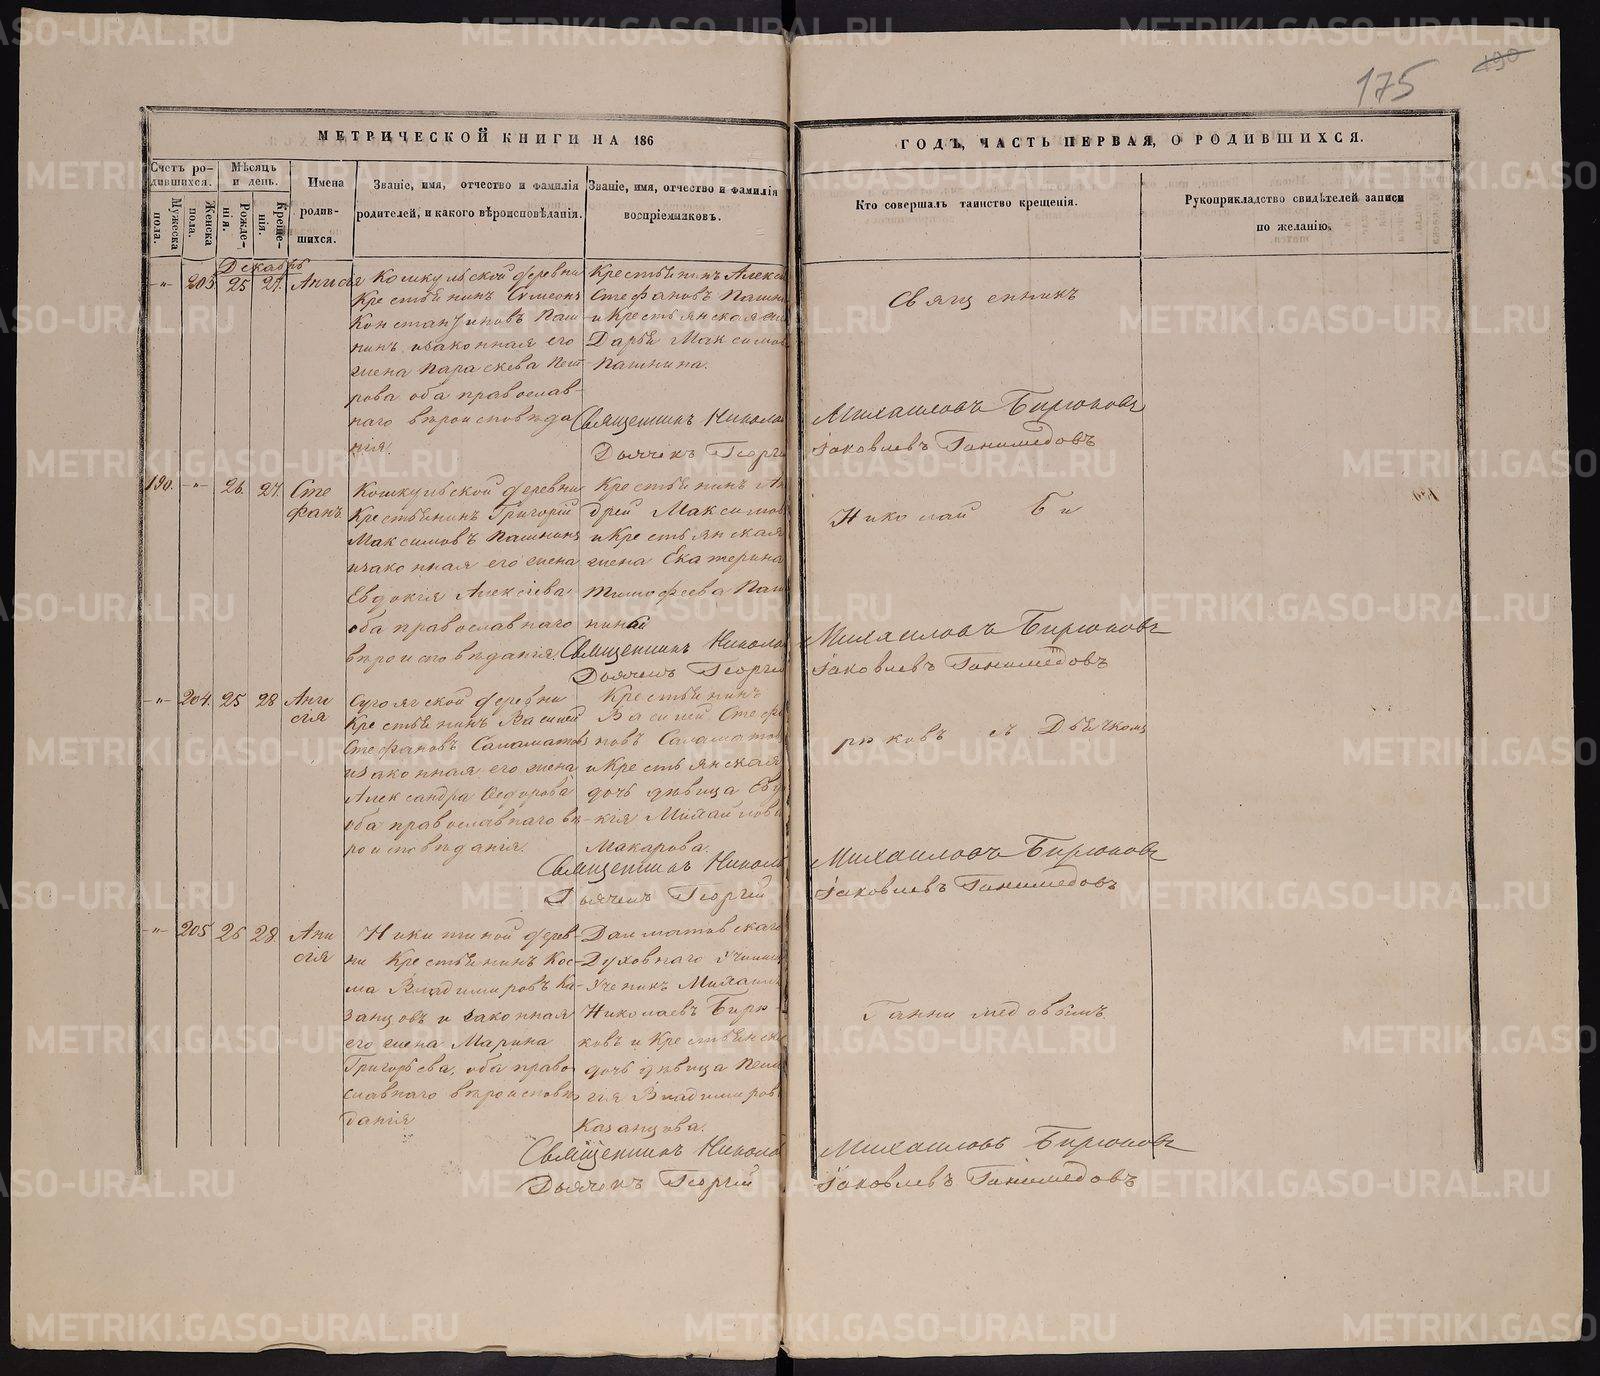 175
190
МЕТРИЧЕСКОЙ КНИГИ НА 186
ГОДЪ, ЧАСТЬ ПЕРВАЯ, О РОДИВШИХСЯ.
Счетъ ро-
дившихся.
Мужеска
пола.
Женска
пола.
Мѣсяцъ
и день.
Рожде-
нія.
Креще-
нія.
Имена
родив-
шихся.
Званіе, имя, отчество и фамилія
родителей, и какого вѣроисповѣданія.
Званіе, имя, отчество и фамилія
воспріемниковъ.
Кто совершалъ таинство крещенія.
Рукоприкладство свидѣтелей записи
по желанію.
Декабрь
-"- 203 25 27. Анисія
Кошкульской деревни
Крестьянинъ Симеонъ
Константиновъ Паш
нинъ, изаконная его
жена Параскева Пет
рова оба православ-
наго вѣроисповѣда
нія.
Крестьянинъ Алексѣ
Стефановъ Пашни
и Крестьянская же
Дарья Максимов
Пашнина.
Священникъ
Священникъ Никола Михаиловъ Бирюковъ
Дьячекъ Георгі Іаковлевъ Ганимедовъ
190. -"- 26. 27. Сте
фанъ
Кошкульской деревни
Крестьянинъ Григорій
Максимовъ Пашнинъ
изаконная его жена
Евдокія Алексіева
оба православнаго
вѣроисповѣданія.
Крестьянинъ Ан
дрей Максимов
и Крестьянская
жена Екатерина
Тимофеева Паш
нина
Николай Би
Священникъ Никола Михаиловъ Бирюковъ
Дьячекъ Георгій Іаковлевъ Ганимедовъ
-"- 204. 25 28 Ани
сія
Сугоякской деревни
Крестьянинъ Василей
Стефановъ Саламатовъ
изаконная его жена
Александра Федорова
оба православнаго вѣ
роисповѣданія.
Крестьянинъ
Василей Стефа
новъ Саламатов
и Крестьянская
дочь дѣвица Евдо
кія Михайлова
Макарова.
рюковъ съ Дьячкомъ
Священникъ Никола Михаиловъ Бирюковъ
Дьячекъ Георгій Іаковлевъ Ганимедовъ
-"- 205 26 28. Ани
сія
Никитиной дерев-
ни Крестьянинъ Кос-
ма Владимировъ Ка-
занцовъ и законная
его жена Марина
Григорьева, оба право
славнаго вѣроисповѣ
данія
Далматовскаго
Духовнаго Училищ
Ученикъ Михаилъ
Николаевъ Бирю-
ковъ и Крестьянска
дочь дѣвица Пела
гія Владимиров
Казанцова.
Ганнимедовымъ.
Священникъ Никола Михаиловъ Бирюковъ
Дьячекъ Георгій Іаковлевъ Ганимедовъ
METRIKI.GASO-URAL.RU